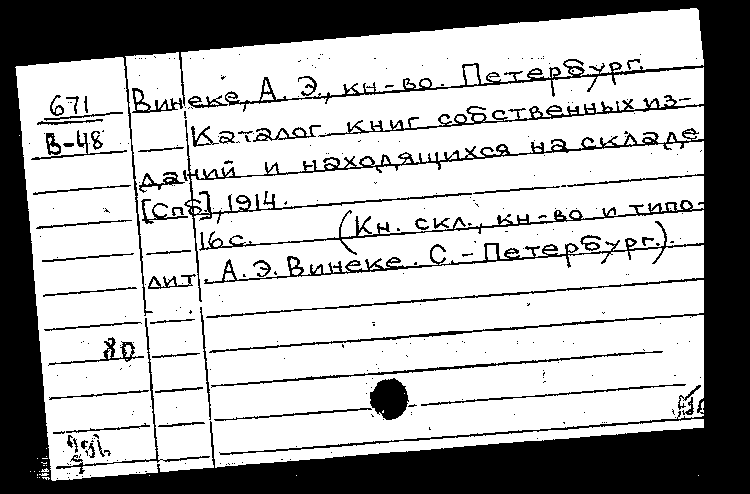 671 Винеке, А. Э., кн-во. Петербург.
В-48 Каталог книг собственных из-
даний и находящихся на складе
[Спб], 1914.
16 с. (Кн. скл., кн-во и типо-
лит. А. Э. Винеке. С.-Петербург.).
80